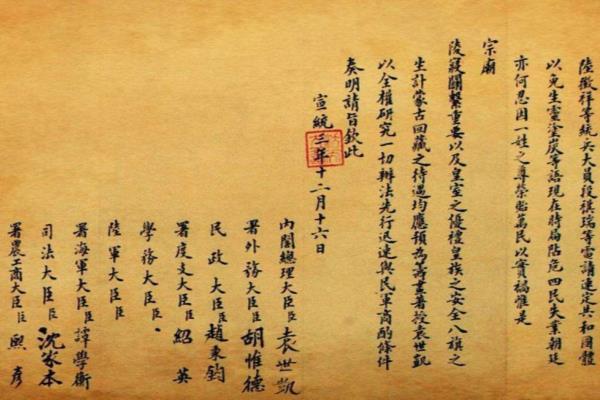 陸徵祥等統兵大員段祺瑞等電請速定共和國體
以免生靈塗炭等語現在時局阽危四民失業朝廷
亦何忍因一姓之尊榮貽萬民以實禍惟是
宗廟
陵寢關繫重要以及皇室之優禮皇族之安全八旗之
生計蒙古回藏之待遇均應預為籌畫著授袁世凱
以全權研究一切辦法先行迅速與民軍商酌條件
奏明請旨欽此
宣統三年十二月十六日
內閣總理大臣臣袁世凱
署外務大臣臣胡惟德
民政大臣臣趙秉鈞
署度支大臣臣紹英
學務大臣臣
陸軍大臣臣
署海軍大臣臣譚學衡
司法大臣臣沈家本
署農商大臣臣熙彥